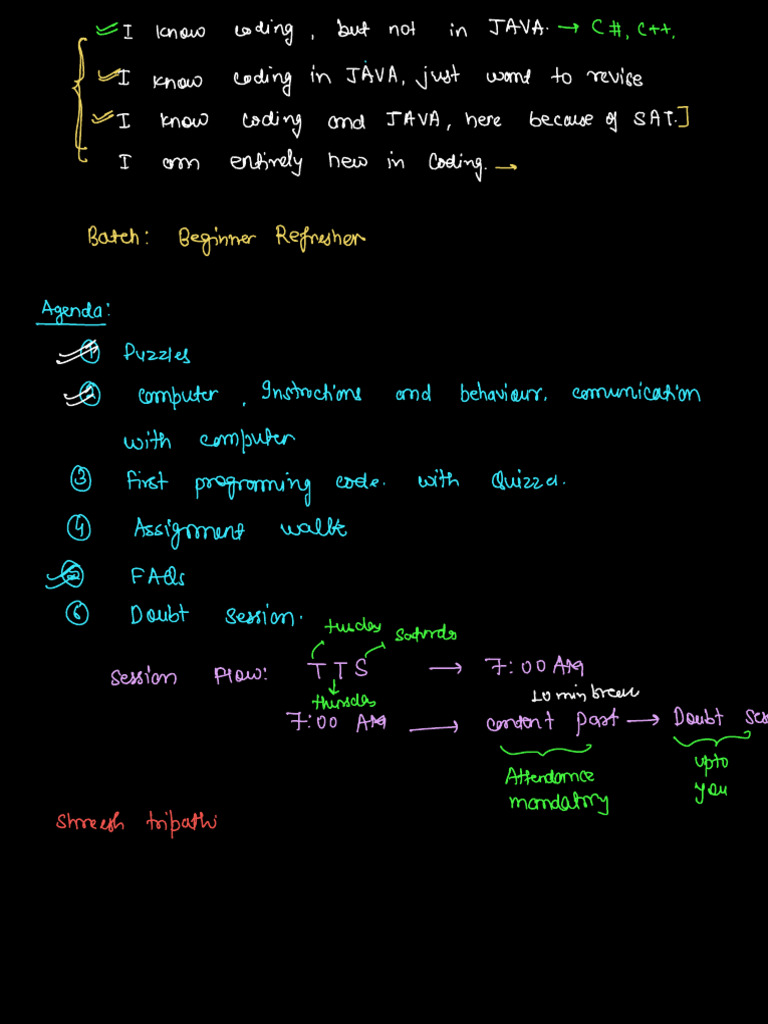 I know coding, but not in JAVA. → C#, C++,
I know coding in JAVA, just want to revise
I know coding and JAVA, here because of SAT.]
I am entirely new in coding. →
Batch: Beginner Refresher
Agenda:
① Puzzles
② computer, Instructions and behaviour, comunication
with computer
③ First programing code. with Quizzes.
④ Assignment walk
⑤ FAQs
⑥ Doubt session.
tuesday saturday
Session Flow: T T S → 7:00 AM
thursday 10 min break
7:00 AM → content part → Doubt ses
Attendance mandatory
upto you
Shreesh tripathi